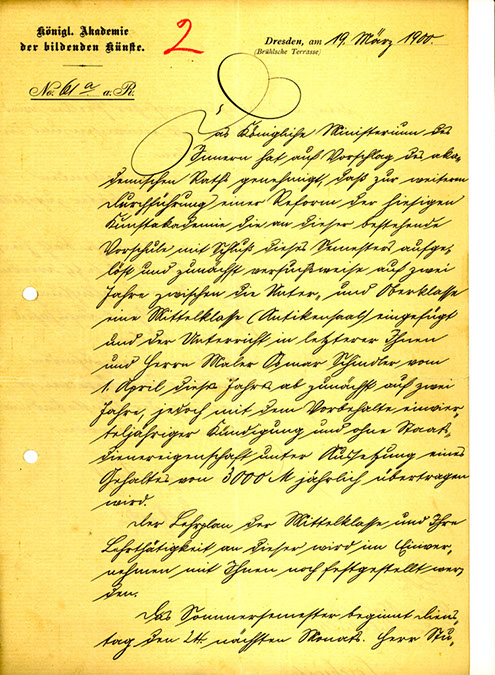 Königl. Akademie
der bildenden Künste.
2
Dresden, am 19. März 1900.
(Brühlsche Terrasse)
No. 61 a a. R.
Das Königliche Ministerium des
Innern hat auf Vorschlag des aka-
demischen Raths genehmigt, daß zur weiteren
Durchführung einer Reform der hiesigen
Kunstakademie die an dieser bestehende
Vorschule mit Schluß dieses Semesters aufge-
löst und zunächst versuchsweise auf zwei
Jahre zwischen die Unter- und Oberklasse
eine Mittelklasse (Antikensaal) eingefügt
und der Unterricht in letzterer Ihnen
und Herrn Maler Osmar Schindler vom
1. April dieses Jahres ab zunächst auf zwei
Jahre, jedoch mit dem Vorbehalte einvier-
teljähriger Kündigung und ohne Staats-
dienereigenschaft unter Aussetzung eines
Gehaltes von 3000 M jährlich übertragen
wird.
Der Lehrplan der Mittelklasse und Ihre
Lehrthätigkeit an dieser wird im Einver-
nehmen mit Ihnen noch festgestellt wer-
den.
Das Sommersemester beginnt Diens-
tag den 24. nächsten Monats. Herr Stu-